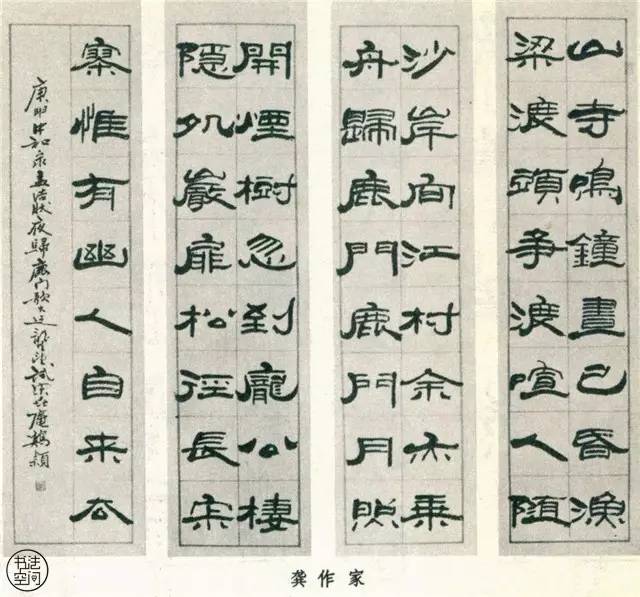 山寺鳴鐘晝已昏漁
梁渡頭争渡喧人随
沙岸向江村余亦乘
舟歸鹿門鹿門月照
開煙樹忽到龐公棲
隱処巖扉松徑長寂
寥惟有幽人自来去
庚申中和录孟浩然夜歸鹿门歌
龚作家
书法空间